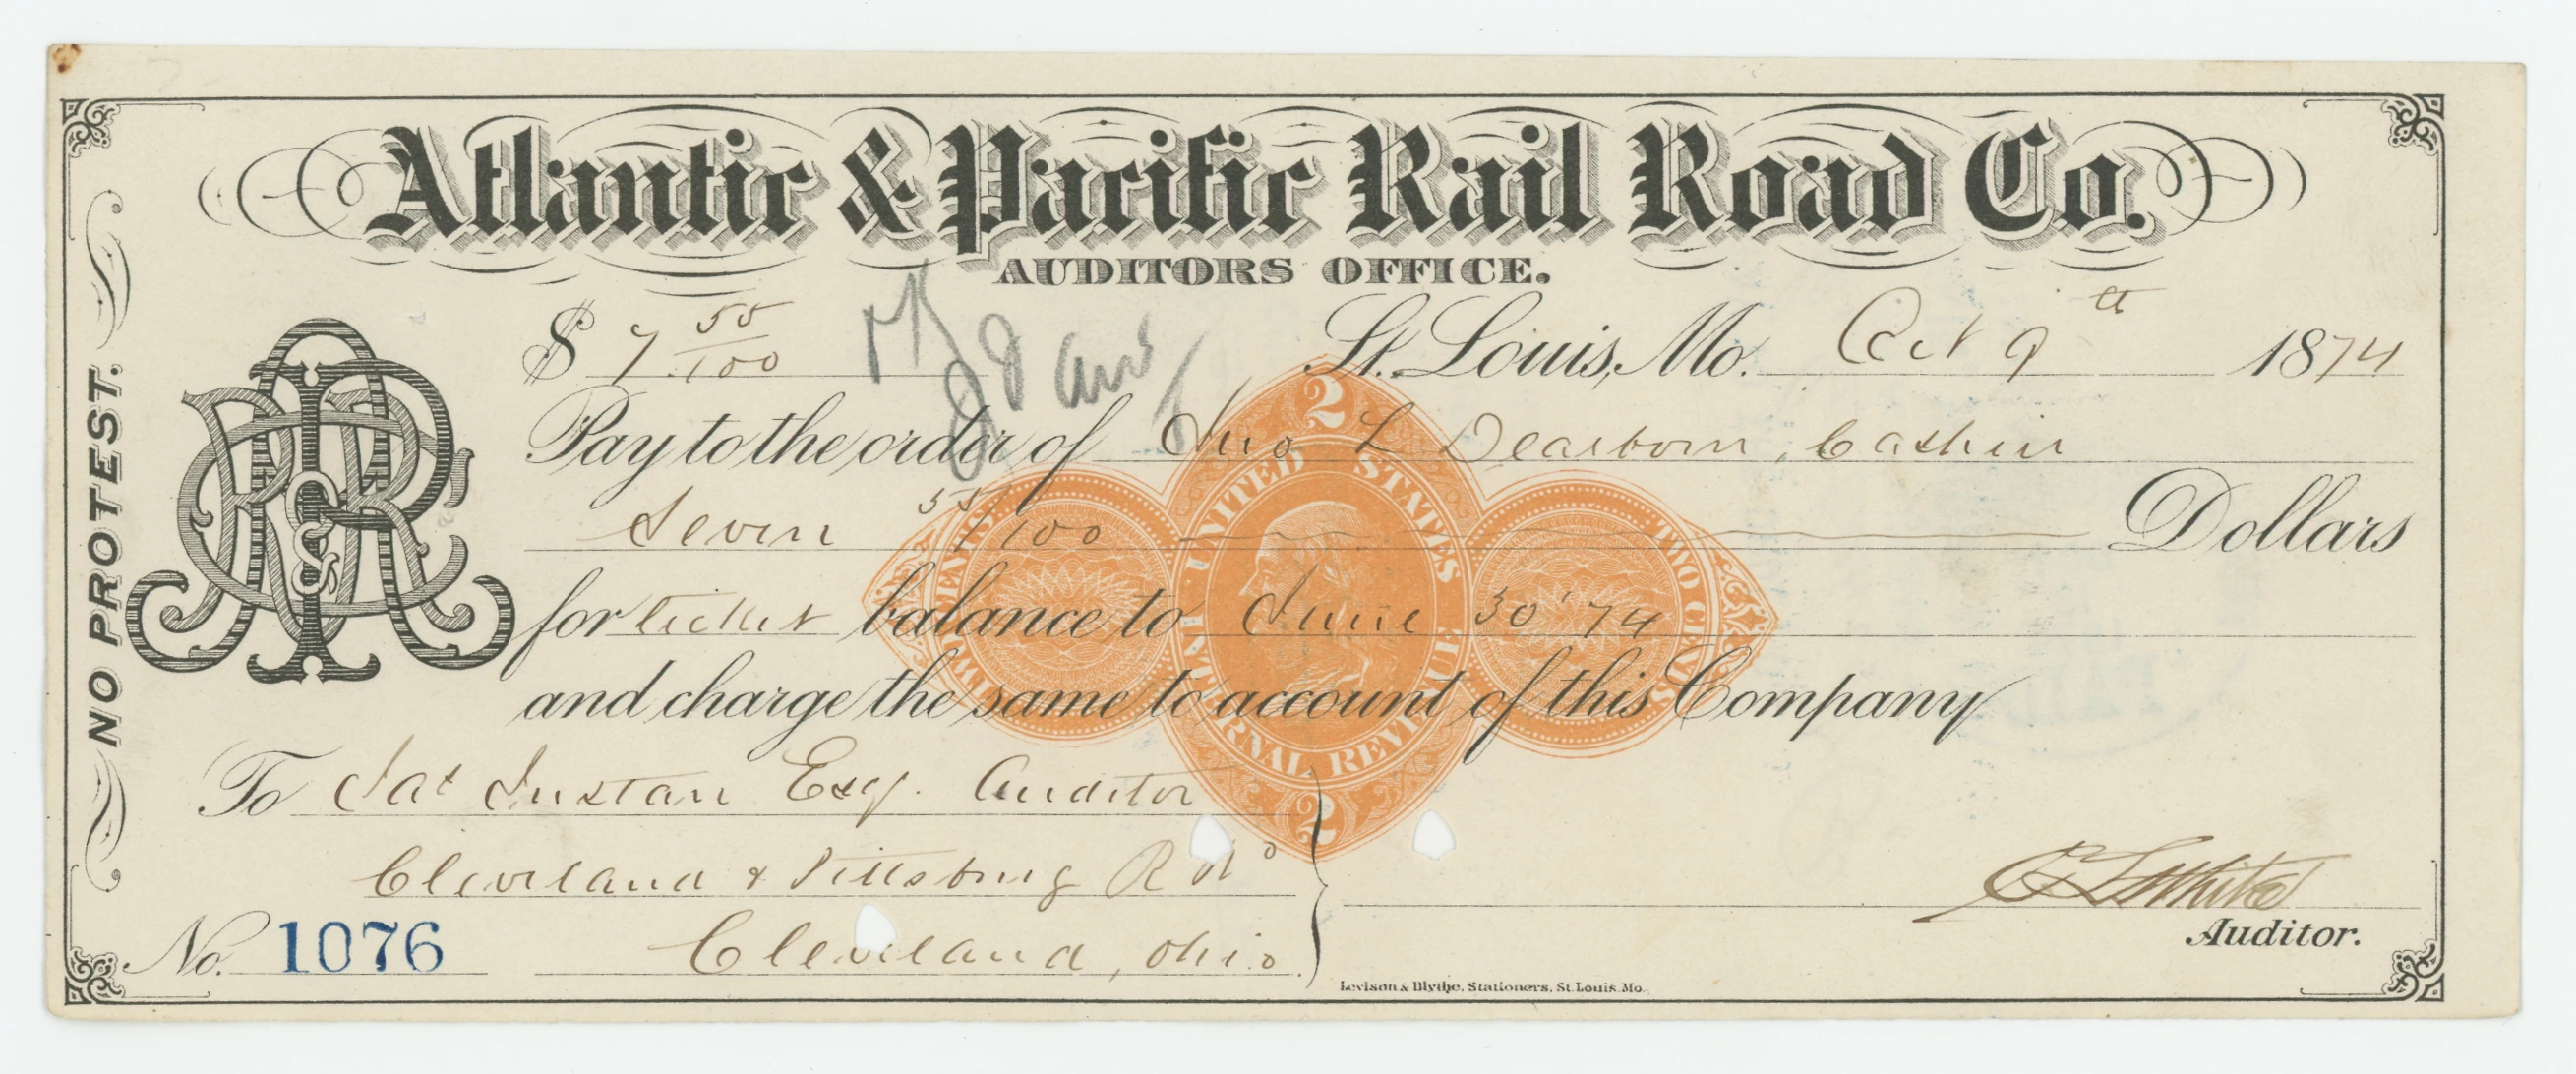 Atlantic & Pacific Rail Road Co.
AUDITORS OFFICE.
$ 7 55/100 St. Louis, Mo. Oct 9th 1874
Pay to the order of Jno L Dearborn, Cashier
Seven 55/100 Dollars
for ticket balance to June 30' 74
and charge the same to account of this Company
To Jas Auditor
Esq.
Cleveland & Pittsburg R Rd
Cleveland, Ohio
No. 1076
Auditor.
Levison & Blythe, Stationers, St. Louis, Mo.
NO PROTEST.
2
UNITED STATES
INTERNAL REVENUE
TWO CENTS
TWO CENTS
2